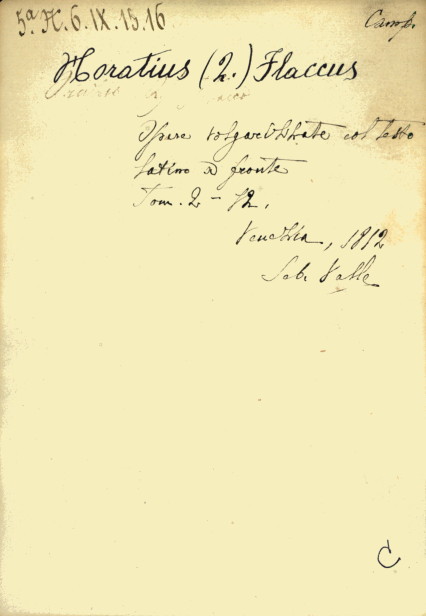 5ª H. 6. IX. 15. 16
Camp.
Horatius (2.) Flaccus
Opere volgarizzate col testo
latino a fronte
Tom. 2 - 12.
Venezia, 1812
Seb. Valle
C